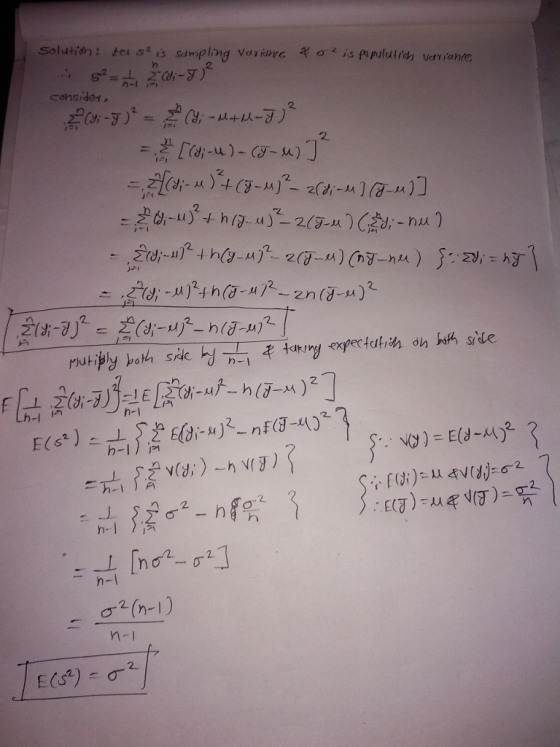 Solution: Let s² is sampling variance & σ² is population variance
∴ s² = 1/(n-1) Σᵢ₌₁ⁿ (yᵢ-ȳ)²
consider,
Σᵢ₌₁ⁿ (yᵢ-ȳ)² = Σᵢ₌₁ⁿ (yᵢ-μ+μ-ȳ)²
= Σᵢ₌₁ⁿ [(yᵢ-μ) - (ȳ-μ)]²
= Σᵢ₌₁ⁿ [(yᵢ-μ)² + (ȳ-μ)² - 2(yᵢ-μ)(ȳ-μ)]
= Σᵢ₌₁ⁿ (yᵢ-μ)² + n(ȳ-μ)² - 2(ȳ-μ)(Σᵢ₌₁ⁿ yᵢ - nμ)
= Σᵢ₌₁ⁿ (yᵢ-μ)² + n(ȳ-μ)² - 2(ȳ-μ)(nȳ-nμ) {∵ Σyᵢ = nȳ}
= Σᵢ₌₁ⁿ (yᵢ-μ)² + n(ȳ-μ)² - 2n(ȳ-μ)²
Σᵢ₌₁ⁿ (yᵢ-ȳ)² = Σᵢ₌₁ⁿ (yᵢ-μ)² - n(ȳ-μ)²
Multiply both side by 1/(n-1) & taking expectation on both side
E[1/(n-1) Σᵢ₌₁ⁿ (yᵢ-ȳ)²] = 1/(n-1) E[Σᵢ₌₁ⁿ (yᵢ-μ)² - n(ȳ-μ)²]
E(s²) = 1/(n-1) {Σᵢ₌₁ⁿ E(yᵢ-μ)² - nE(ȳ-μ)²} {∵ V(y) = E(y-μ)²}
= 1/(n-1) {Σᵢ₌₁ⁿ V(yᵢ) - n V(ȳ)} {∵ E(yᵢ) = μ & V(yᵢ) = σ²
= 1/(n-1) {Σᵢ₌₁ⁿ σ² - n σ²/n} ∴ E(ȳ) = μ & V(ȳ) = σ²/n}
= 1/(n-1) [nσ² - σ²]
= σ²(n-1)/(n-1)
E(s²) = σ²